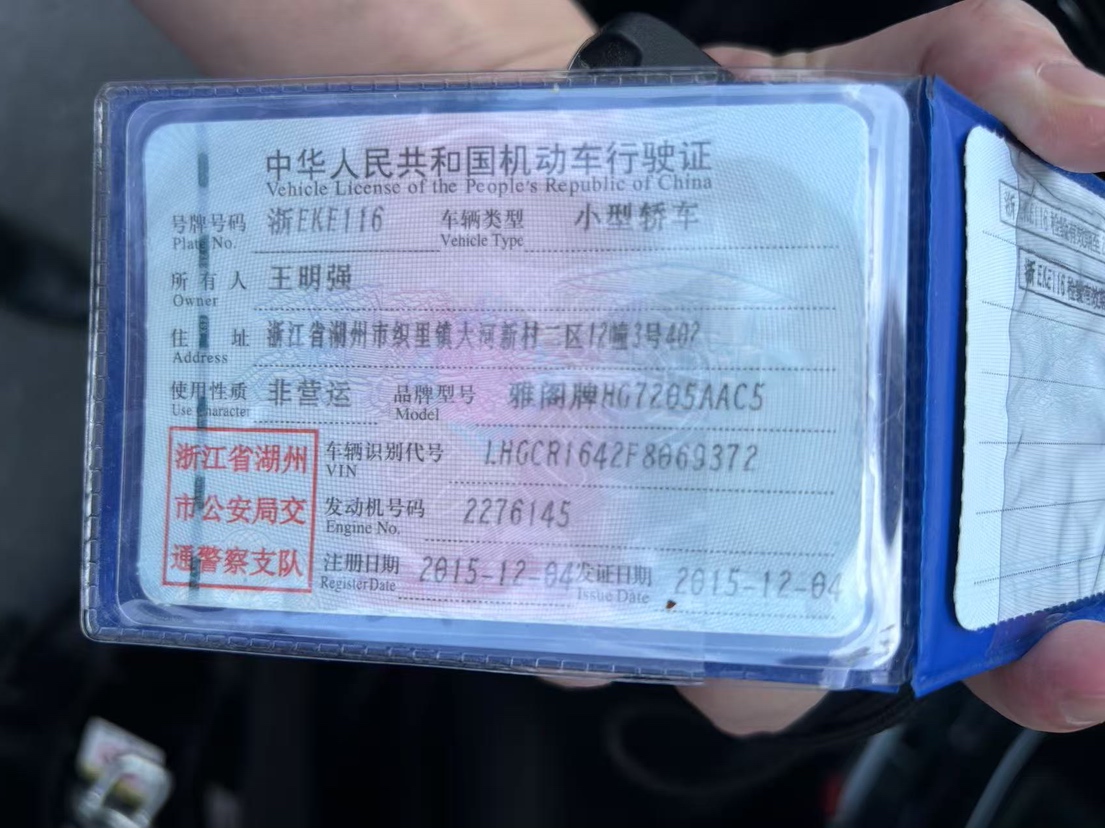 中华人民共和国机动车行驶证
Vehicle License of the People's Republic of China
号牌号码 浙EKE116 车辆类型 小型轿车
Plate No. Vehicle Type
所有人 王明强
Owner
住址 浙江省湖州市织里镇大河新村二区12幢3号402
Address
使用性质 非营运 品牌型号 雅阁牌HG7205AAC5
Use Character Model
浙江省湖州
市公安局交
通警察支队
车辆识别代号 LHGCR1642F8069372
VIN
发动机号码 2276145
Engine No.
注册日期 2015-12-04 发证日期 2015-12-04
Register Date Issue Date
浙EKE116
浙EKE116